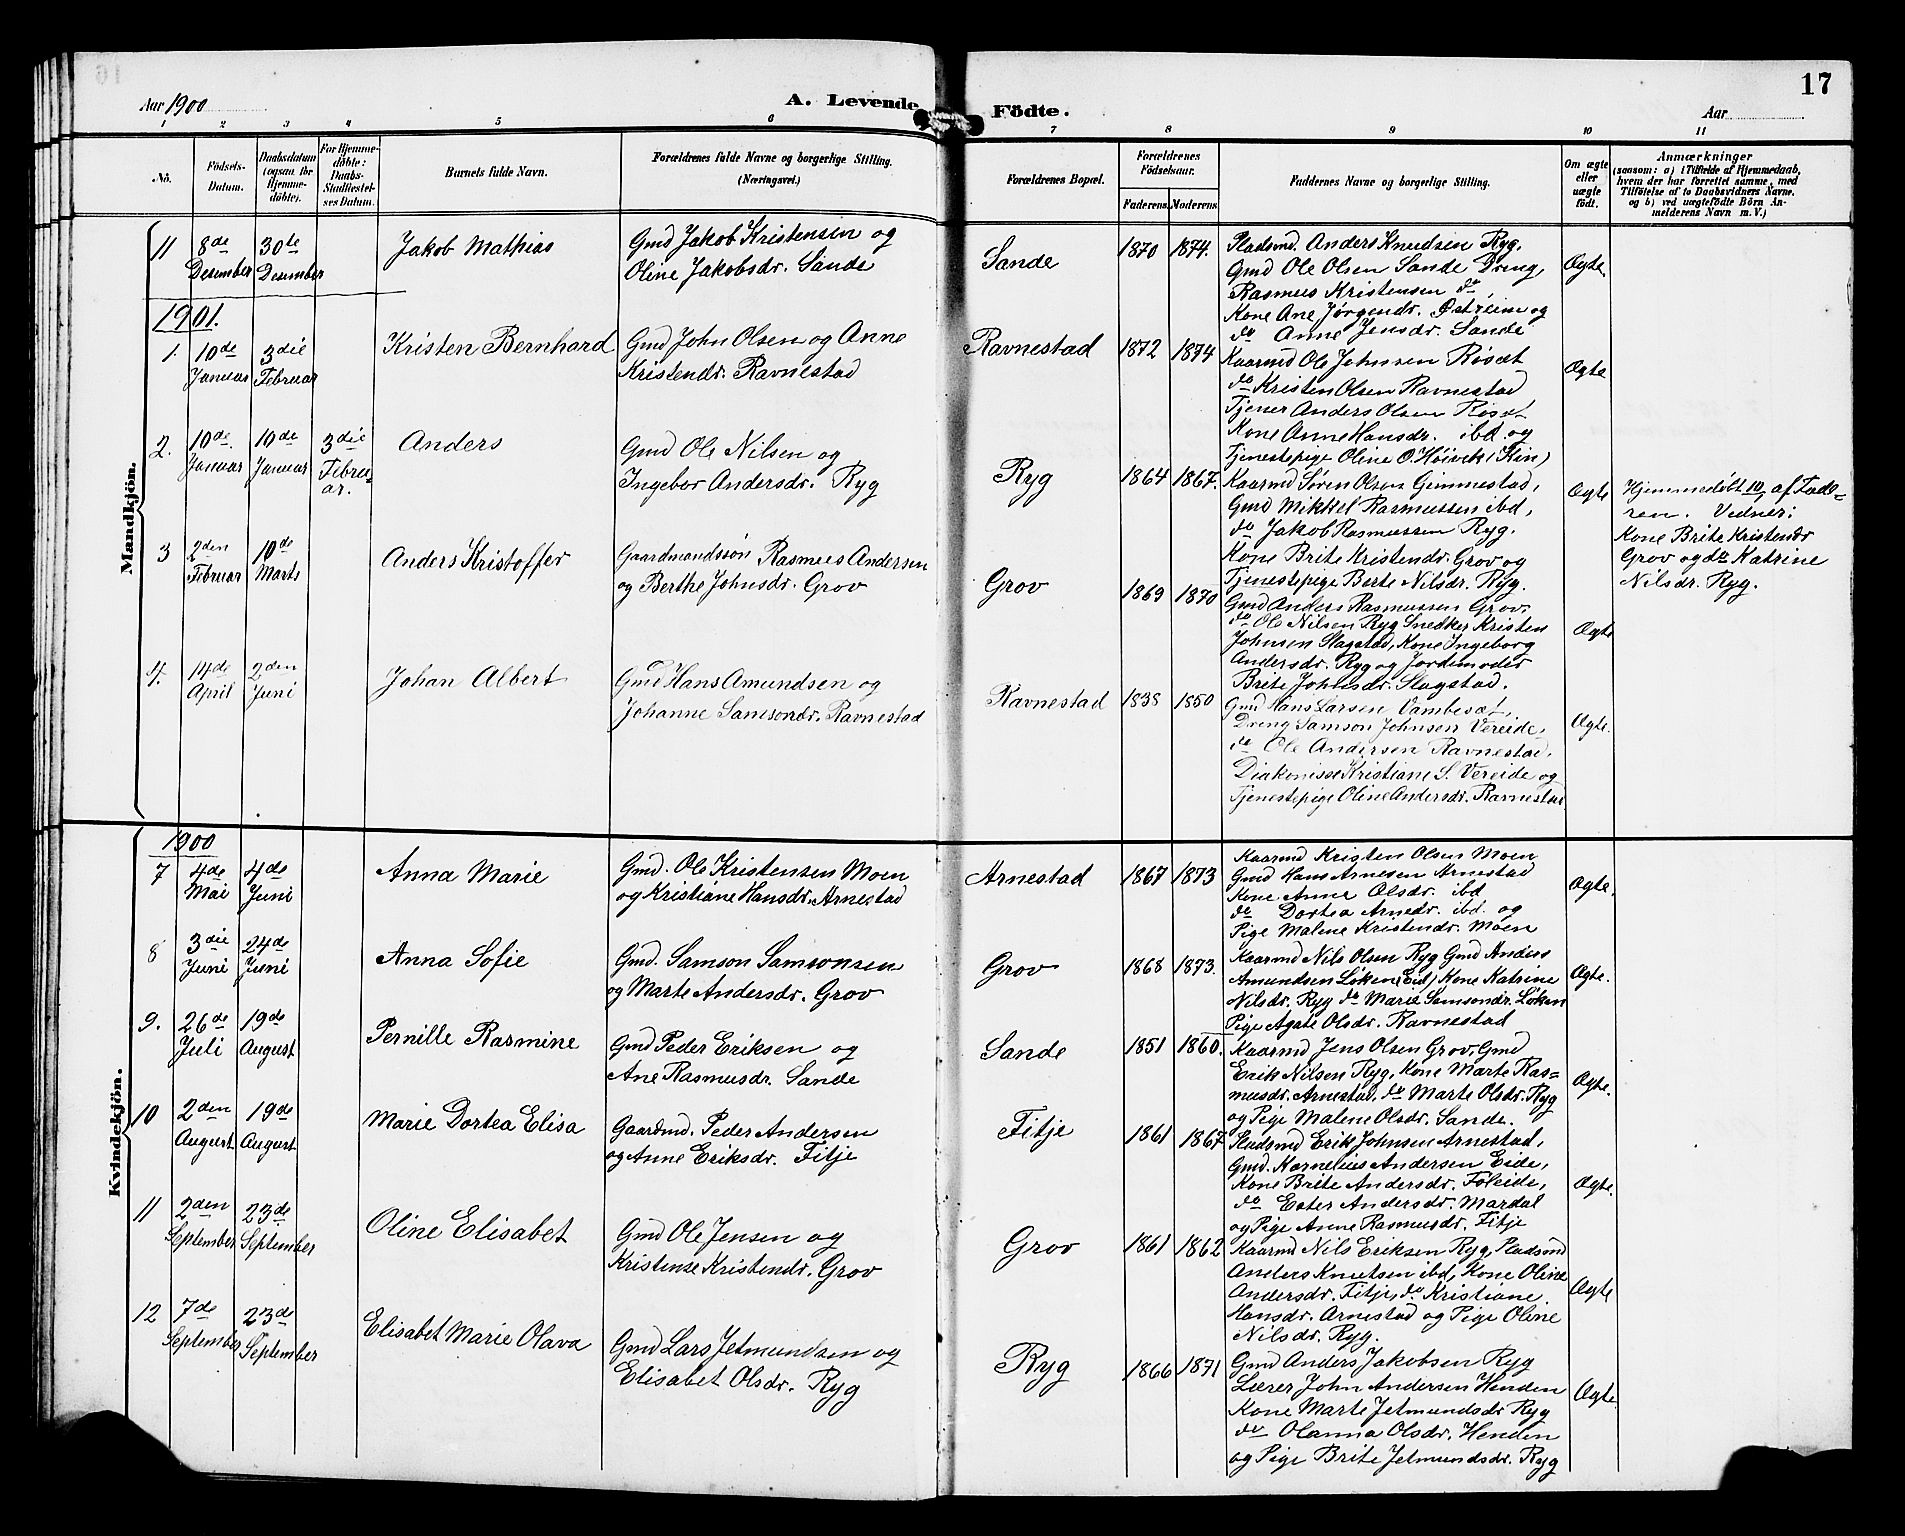 17
Aar 1900
A. Levende
Födte.
Aar
1 2 3 4 5 6 7 8 9 10 11
No.
Födsels-
Datum.
Daabsdatum
(ogsaa for
Hjemme-
döbte).
For Hjemme-
döbte:
Daabs-
Stadfæstel-
ses Datum.
Barnets fulde Navn.
Forældrenes fulde Navne og borgerlige Stilling.
(Næringsvei.)
Forældrenes Bopæl.
Forældrenes
Födselsaar.
Faderens.
Moderens.
Faddernes Navne og borgerlige Stilling.
Om ægte
eller
uægte
födt.
Anmærkninger
(saasom: a) i Tilfælde af Hjemmedaab,
hvem der har forrettet samme, med
Tilföielse af to Daabsvidners Navne,
og b) ved uægtefödte Börn An-
melderens Navn m. V.)
Mandkjön.
11
8de
Desember
30te
Desember
Jakob Mathias
Gmd Jakob Kristensen og
Oline Jakobsdr. Sande
Sande
1870
1874.
Pladsmd. Anders Knudsen Ryg.
Gmd Ole Olsen Sande Dreng
Rasmus Kristensen do
Kone Ane Jørgendr. Østreim og
do Anne Jensdr. Sande
Ægte.
1901.
1.
10de
Januar
3die
Februar
Kristen Bernhard
Gmd John Olsen og Anne
Kristendr. Ravnestad
Ravnestad
1872
1874
Kaarmd Ole Johnsen Røsæt
do Kristen Olsen Ravnestad
Tjener Anders Olsen Røsæt
Kone Anne Hansdr. ibd og
Tjenestepige Oline O. Høivik (Kin)
Ægte
2.
10de
Januar
10de
Januar
3die
Febru-
ar.
Anders
Gmd Ole Nilsen og
Ingebor Andersdr. Ryg
Ryg
1864
1867.
Kaarmd Søren Olsen Gimmestad,
Gmd Mikkel Rasmussen ibd,
do Jakob Rasmussen Ryg.
Kone Brite Kristendr. Grov og
Tjenestepige Berte Nilsdr. Ryg.
Ægte
Hjemmedøbt 10/1 af Fade-
ren. Vidner:
Kone Brite Kristendr
Grov og do Katrine
Nilsdr. Ryg.
3
2den
Februar
10de
Marts
Anders Kristoffer
Gaardmandssøn Rasmus Andersen
og Berthe Johnsdr. Grov
Grov
1869
1870
Gmd Anders Rasmussen Grov,
do Ole Nilsen Ryg Snedker Kristen
Johnsen Slagstad, Kone Ingeborg
Andersdr. Ryg og Jordmoder
Brite Johnsdr. Slagstad.
Ægte
4.
14de
April
2den
Juni
Johan Albert
Gmd Hans Amundsen og
Johanne Samsondr. Ravnestad
Ravnestad
1838
1850
Gmd Hans Larsen Vambesæt,
Dreng Samson Johnsen Vereide,
do Ole Andersen Ravnestad,
Diakonisse Kristiane S. Vereide og
Tjenestepige Oline Andersdr. Ravnestad
Ægte.
Kvindekjön.
1900
7
4de
Mai
4de
Juni
Anna Marie
Gmd. Ole Kristensen Moen
og Kristiane Hansdr. Arnestad
Arnestad
1867
1873
Kaarmd Kristen Olsen Moen
Gmd Hans Arnesen Arnestad
Kone Anne Olsdr. ibd
do Dortea Arnedr. ibd. og
Pige Malene Kristendr. Moen
Ægte.
8
3die
Juni
24de
Juni
Anna Sofie
Gmd. Samson Samsonsen
og Marte Andersdr. Grov
Grov
1868
1873.
Kaarmd Nils Olsen Ryg Gmd Anders
Amundsen Løken (Eid) Kone Katrine
Nilsdr. Ryg do Marie Samsondr. Løken
Pige Agate Olsdr. Ravnestad
Ægte.
9.
26de
Juli
19de
August
Pernille Rasmine
Gmd Peder Eriksen og
Ane Rasmusdr. Sande
Sande
1851
1860.
Kaarmd Jens Olsen Grov, Gmd
Erik Nilsen Ryg, Kone Marte Ras-
musdr. Arnestad, do Marte Olsdr. Ryg
og Pige Malene Olsdr. Sande.
Ægte.
10
2den
August
19de
August
Marie Dortea Elisa
Gaardmd. Peder Andersen
og Anne Eriksdr. Fitje
Fitje
1861
1867
Pladsmd Erik Johnsen Arnestad,
Gmd. Kornelius Andersen Eide,
Kone Brite Andersdr. Føleide,
do Ester Andersdr. Mardal
og Pige Anne Rasmusdr. Fitje
Ægte.
11
2den
September
23de
September
Oline Elisabet
Gmd Ole Jensen og
Kristense Kristendr. Grov
Grov
1861
1862
Kaarmd Nils Eriksen Ryg, Pladsmd
Anders Knutsen ibd, Kone Oline
Andersdr. Fitje, do Kristiane
Hansdr. Arnestad og Pige Oline
Nilsdr. Ryg.
Ægte
12
7de
September
23de
September
Elisabet Marie Olava
Gmd Lars Jetmundsen og
Elisabet Olsdr. Ryg
Ryg
1866
1871
Gmd Anders Jakobsen Ryg
Lærer John Andersen Henden
Kone Marte Jetmundsdr Ryg
do Olanna Olsdr. Henden
og Pige Brite Jetmundsdr. Ryg
Ægte.